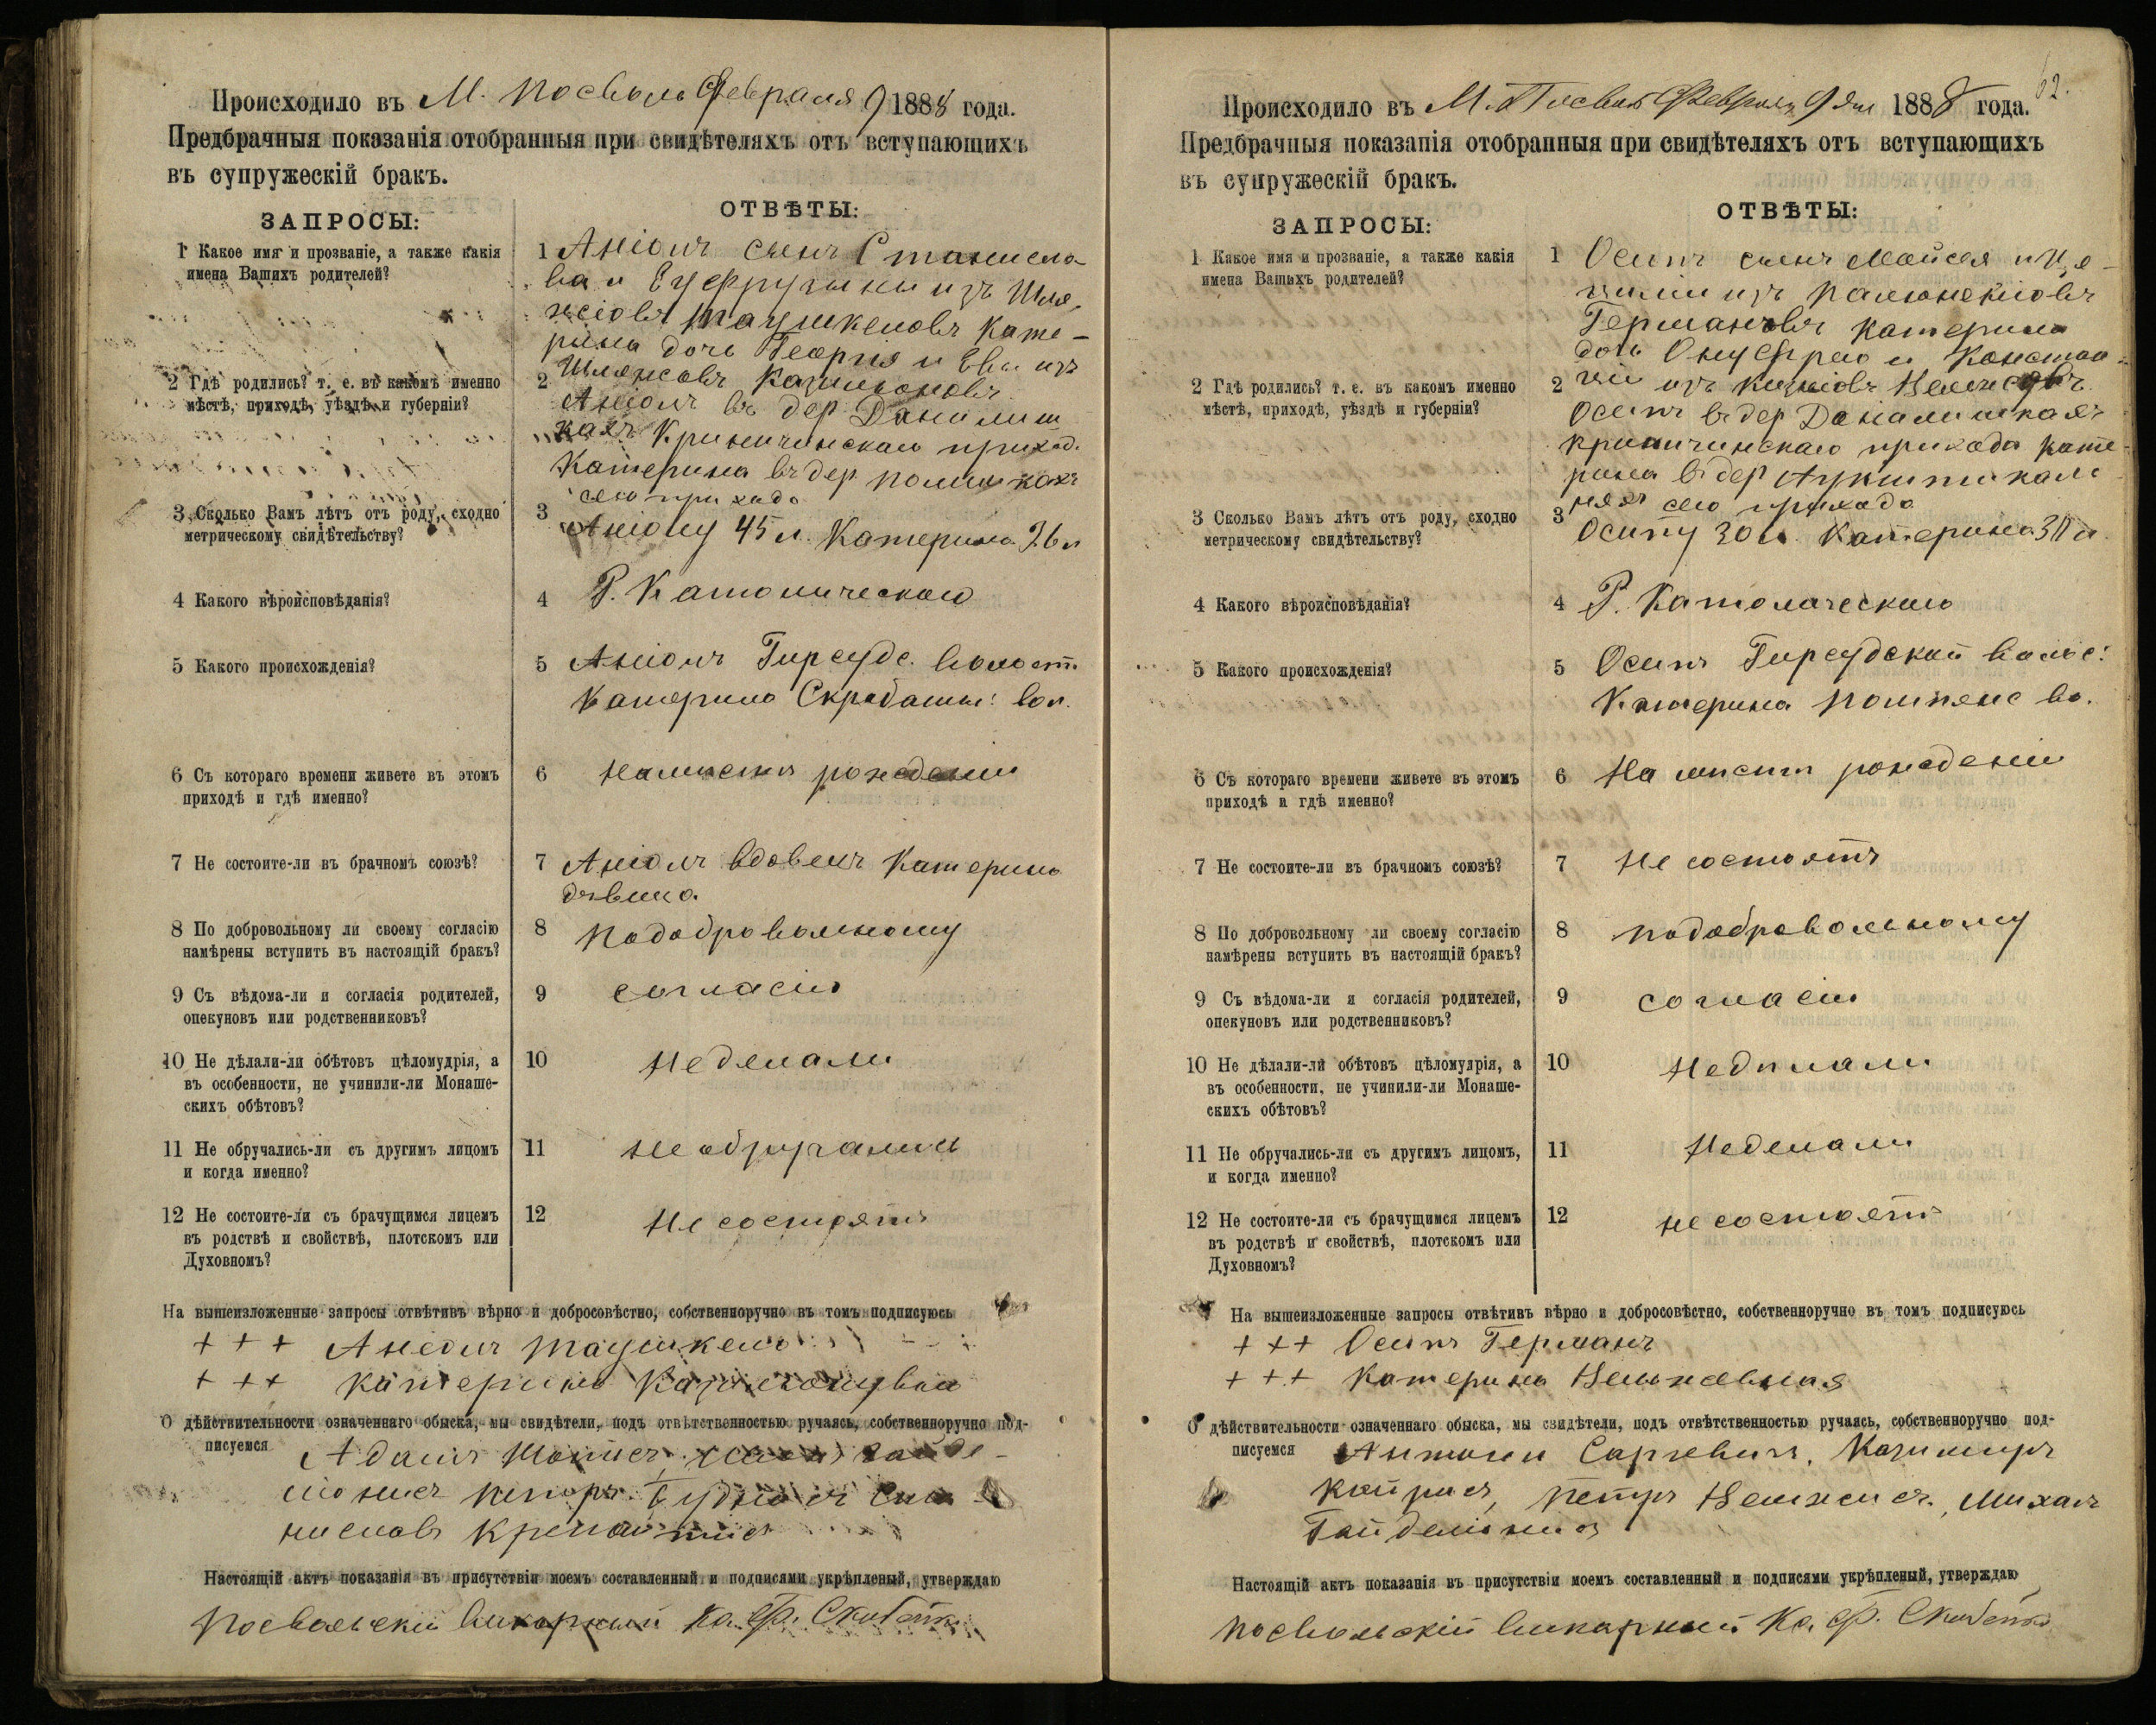 Происходило въ М. Посволь Февраля 9 1888 года.
Предбрачныя показанія отобранныя при свидѣтеляхъ отъ вступающихъ
въ супружескій бракъ.
ЗАПРОСЫ:
ОТВѢТЫ:
1 Какое имя и прозваніе, а также какія
имена Вашихъ родителей?
1 Аніолъ сынъ Станисла-
ва и
рина дочь Георгія и Евы изъ
2 Гдѣ родились? т. е. въ какомъ именно
мѣстѣ, приходѣ, уѣздѣ и губерніи?
2 Аніолъ въ дер Данилиш
кахъ Криничинскаго приход.
Катерина въ дер
сего прихода
3 Сколько Вамъ лѣтъ отъ роду, сходно
метрическому свидѣтельству?
3 Аніолу 45 л. Катерина 26 л
4 Какого вѣроисповѣданія?
4 Р. Католическаго
5 Какого происхожденія?
5 Аніолъ Гирсудс. волост.
Катерина вол.
6 Съ котораго времени живете въ этомъ
приходѣ и гдѣ именно?
6 На мѣстѣ рожденія
7 Не состоите-ли въ брачномъ союзѣ?
7 Аніолъ вдовецъ Катерина
дѣвица.
8 По добровольному ли своему согласію
намѣрены вступить въ настоящій бракъ?
8 По добровольному
9 Съ вѣдома-ли и согласія родителей,
опекуновъ или родственниковъ?
9 согласію
10 Не дѣлали-ли обѣтовъ цѣломудрія, а
въ особенности, не учинили-ли Монаше-
скихъ обѣтовъ?
10 Не делали
11 Не обручались-ли съ другимъ лицомъ
и когда именно?
11 не обручались
12 Не состоите-ли съ брачущимся лицемъ
въ родствѣ и свойствѣ, плотскомъ или
Духовномъ?
12 Не состоятъ
На вышеизложенные запросы отвѣтивъ вѣрно и добросовѣстно, собственноручно въ томъ подписуюсь
+ + + Аніолъ
+ + + Катерина
О дѣйствительности означеннаго обыска, мы свидѣтели, подъ отвѣтственностью ручаясь, собственноручно под-
писуемся Адамъ
Настоящій актъ показанія въ присутствіи моемъ составленный и подписями укрѣпленый, утверждаю
Посвольскій Викарный Кс. Ф.
62.
Происходило въ М. Посволь Февраля 9 дня 1888 года.
Предбрачныя показанія отобранныя при свидѣтеляхъ отъ вступающихъ
въ супружескій бракъ.
ЗАПРОСЫ:
ОТВѢТЫ:
1 Какое имя и прозваніе, а также какія
имена Вашихъ родителей?
1 Осипъ сынъ Мойсея и
Германовъ Катерина
дочь Онуфрія и Констан-
ціи изъ
2 Гдѣ родились? т. е. въ какомъ именно
мѣстѣ, приходѣ, уѣздѣ и губерніи?
2 Осипъ въ дер Данилишкахъ
Криничинскаго прихода Кате-
рина въ дер
сего прихода
3 Сколько Вамъ лѣтъ отъ роду, сходно
метрическому свидѣтельству?
3 Осипу 30 л. Катерина
4 Какого вѣроисповѣданія?
4 Р. Католическаго
5 Какого происхожденія?
5 Осипъ Гирсудской волос:
Катерина во.
6 Съ котораго времени живете въ этомъ
приходѣ и гдѣ именно?
6 На мистѣ рожденія
7 Не состоите-ли въ брачномъ союзѣ?
7 Не состоятъ
8 По добровольному ли своему согласію
намѣрены вступить въ настоящій бракъ?
8 по добровольному
9 Съ вѣдома-ли и согласія родителей,
опекуновъ или родственниковъ?
9 согласію
10 Не дѣлали-ли обѣтовъ цѣломудрія, а
въ особенности, не учинили-ли Монаше-
скихъ обѣтовъ?
10 Не дѣлали
11 Не обручались-ли съ другимъ лицомъ,
и когда именно?
11 Не делали
12 Не состоите-ли съ брачущимся лицемъ
въ родствѣ и свойствѣ, плотскомъ или
Духовномъ?
12 не состоятъ
На вышеизложенные запросы отвѣтивъ вѣрно и добросовѣстно, собственноручно въ томъ подписуюсь
+ + + Осипъ Германъ
+ + + Катерина
О дѣйствительности означеннаго обыска, мы свидѣтели, подъ отвѣтственностью ручаясь, собственноручно под-
писуемся Антони Казимиръ
Петръ Михалъ
Настоящій актъ показанія въ присутствіи моемъ составленный и подписями укрѣпленый, утверждаю
Посвольскій Викарный Кс. Ф.